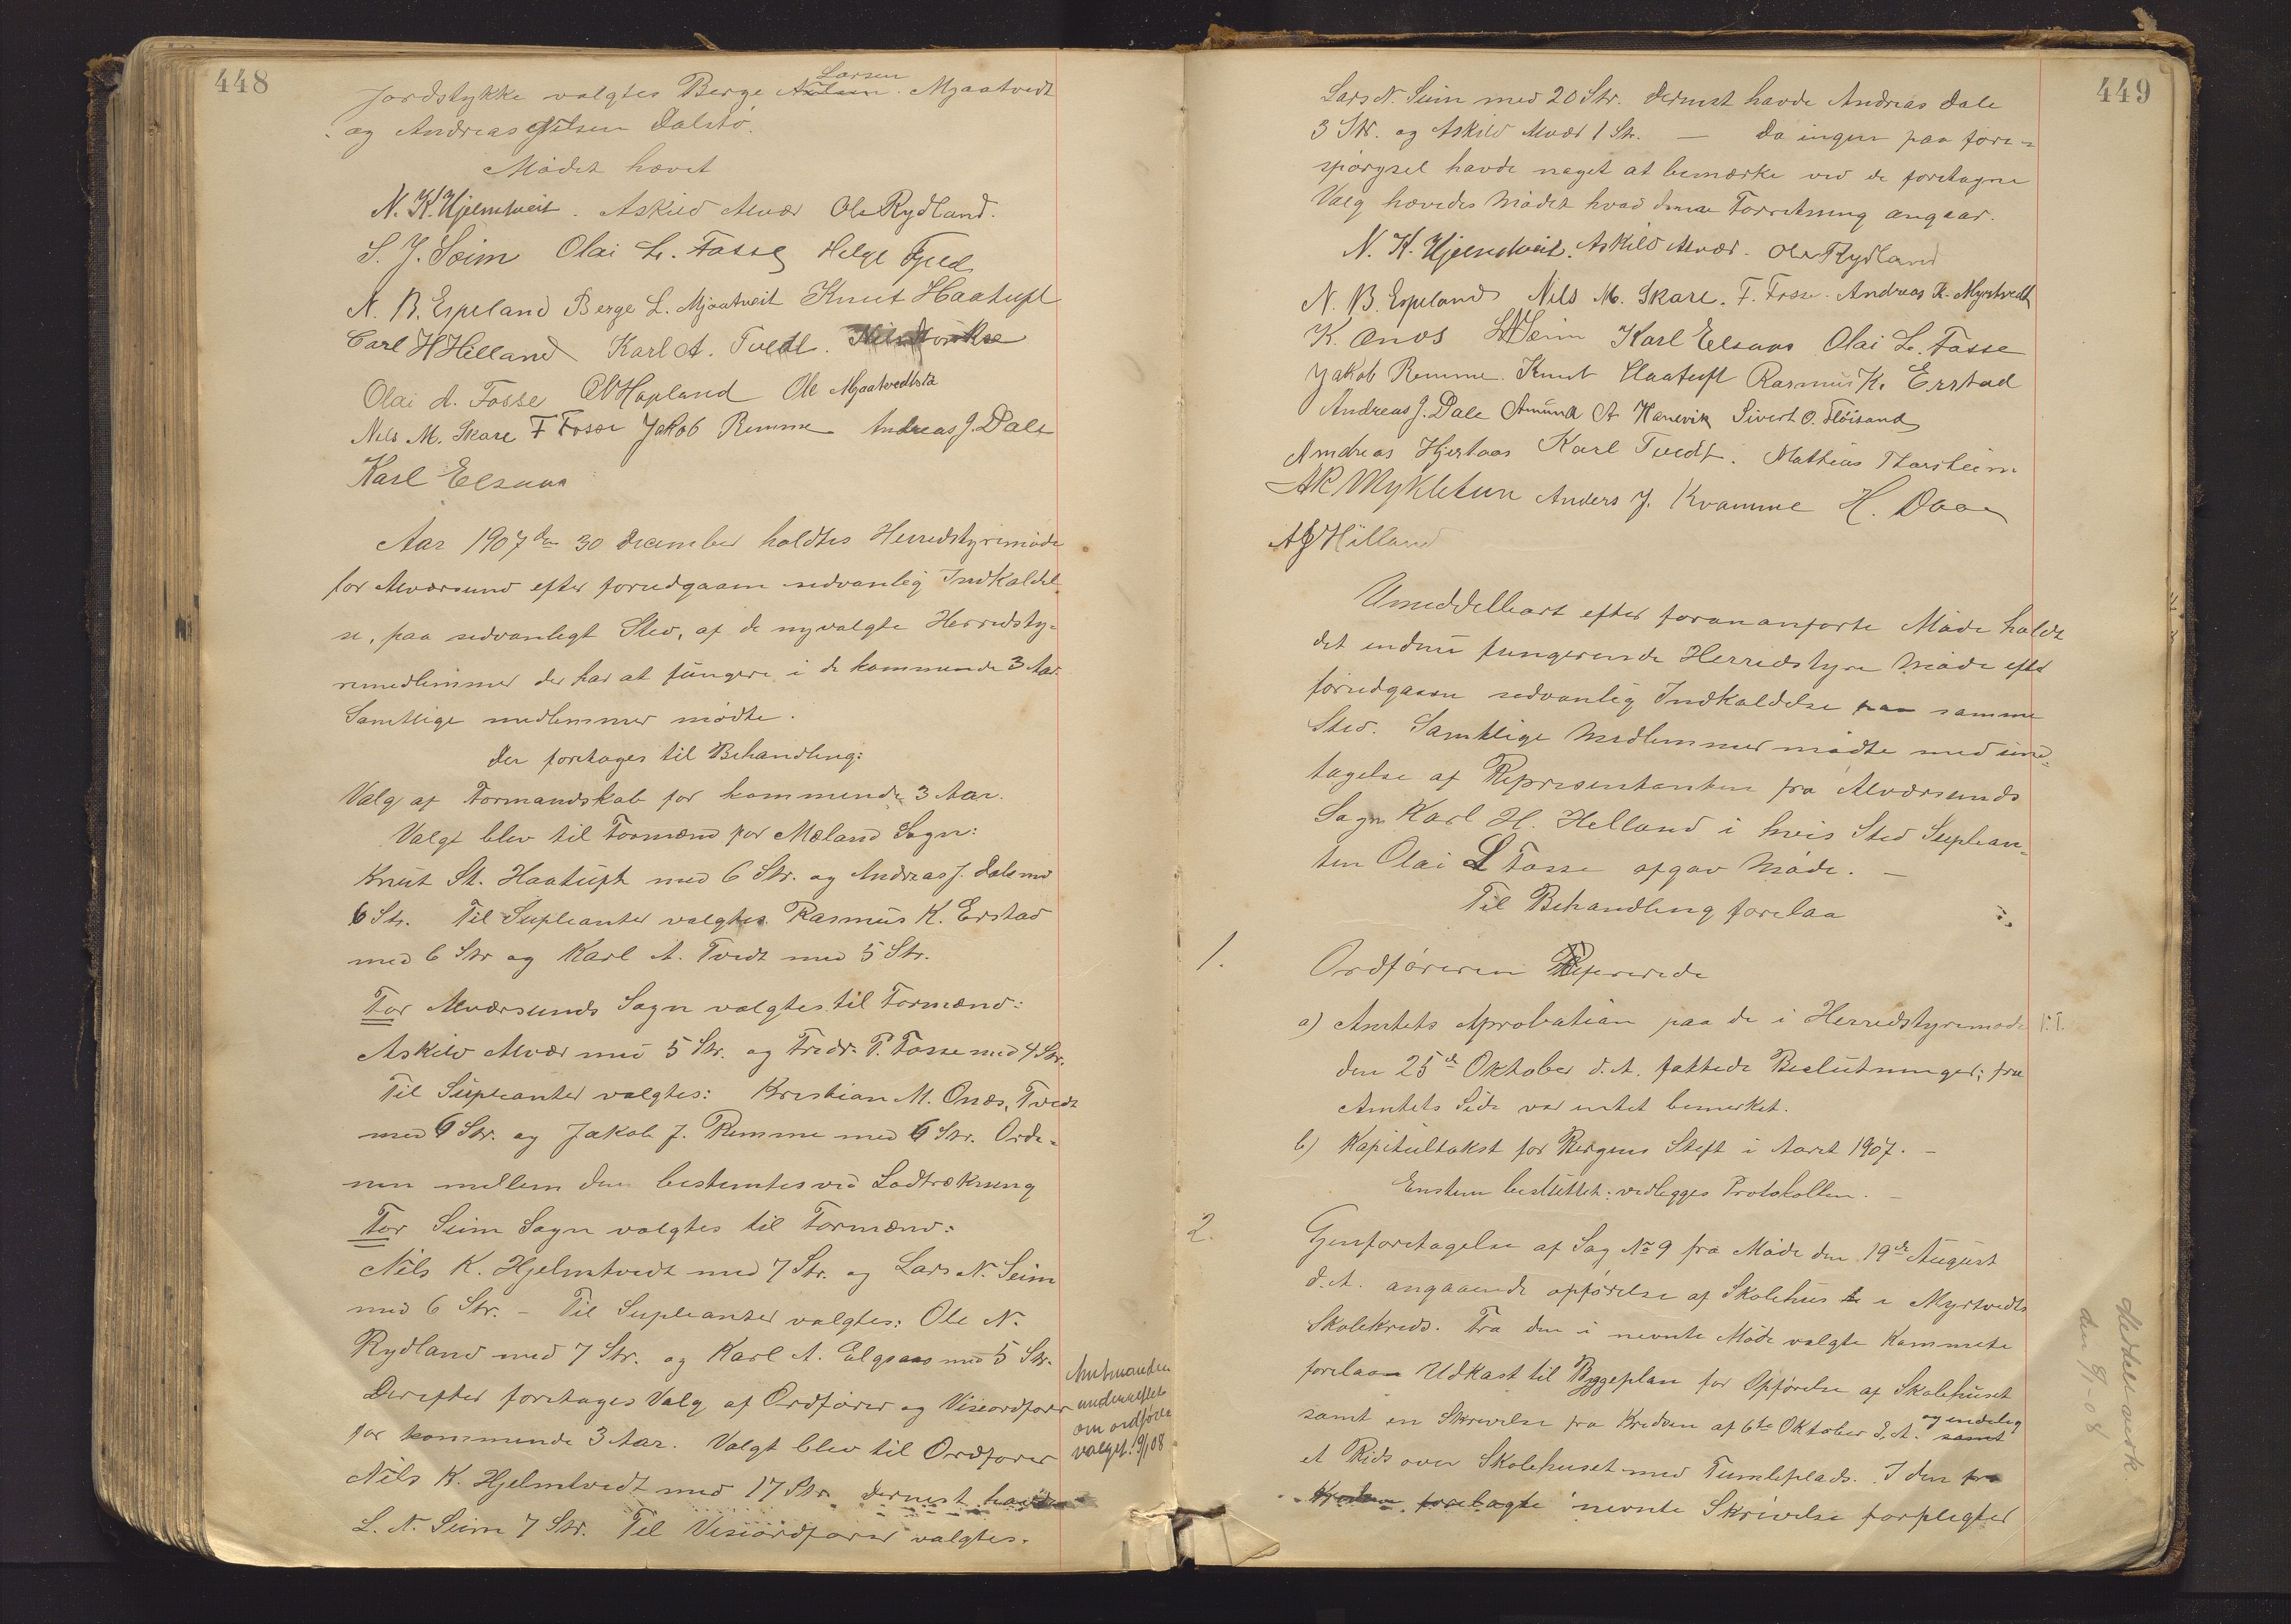 448
Jordstykke valgtes Berge Larsen Mjaatvedt
og Andreas Nilsen Dalstø.
Mødet hævet
N. K. Hjelmtveit. Askild Alvær Ole Rydland.
S. J. Seim Olai L. Fosse Helge Fjeld
N. B. Espeland Berge L. Mjaatveit Knut Haatuft
Carl H Helland Karl A. Tvedt.
Olai A. Fosse Hopland Ole Mjaatvedtstø
Nils M. Skare F Fosse Jakob Remme Andreas J. Dale
Karl Elsaas
Aar 1907 den 30 December holdtes Herredstyremøde
for Alværsund efter forudgaaen sedvanlig Indkaldel
se, paa sedvanligt Sted, af de nyvalgte Herredsty-
remedlemmer der har at fungere i de kommende 3 Aar.
Samtlige medlemmer mødte.
Der foretages til Behandling:
Valg af Formandskab for kommende 3 Aar.
Valgt blev til Formænd for Mæland Sogn:
Knut St. Haatuft med 6 Str. og Andreas J. Dale med
6 St. Til Supleanter valgtes Rasmus K. Erstad
med 6 Str og Karl A. Tvedt med 5 Str.
For Alværsunds Sogn valgtes til Formænd:
Askild Alvær med 5 Str. og Fredr. P. Fosse med 4 Str.
Til Supleanter valgtes: Kristian M. Onæs, Tvedt
med 6 Str. og Jakob J. Remme med 6 Str. Orde-
nen mellem dem bestemtes ved Lodtrækning
For Seim Sogn valgtes til Formænd:
Nils K. Hjelmtvedt med 7 Str. og Lars N. Seim
med 6 Str. - Til Supleanter valgtes: Ole N.
Rydland med 7 Str. og Karl A. Elgsaas med 5 Str.
Derefter foretages Valg af Ordfører og Viseordfører
for kommende 3 Aar. Valgt blev til Ordfører
Nils K. Hjelmtvedt med 17 Str. dernest havde
L. N. Seim 7 Str. Til Viseordfører valgtes.
Amtmanden
underrettet
om ordfører
valget. 9/1 08
449
Lars N. Seim med 20 Str. dernest havde Andreas Dale
3 Str. og Askild Alvær 1 St. — Da ingen paa fore-
spørgsel havde noget at bemærke ved de foretagne
Valg hævedes Mødet hvad denne Forretning angaar.
N. K. Hjelmtveit. Askild Alvær. Ole Rydland
N. B. Espeland Nils M. Skare. F. Fosse. Andreas K. Myrtvedt
K. Onæs L N Seim Karl Elsaas Olai L. Fosse
Jakob Remme. Knut Haatuft Rasmus K. Erstad
Andreas J. Dale Amund A Hanevik Sivert O. Fløisand
Andreas Hjertaas Karl Tvedt. Mathias Thorsheim
A R Mykletun Anders J. Kvamme H. Daae
Helland
Umeddelbart efter forananførte Møde holdt
det endnu fungerende Herredstyre Møde efter
forudgaaen sedvanlig Indkaldelse paa samme
Sted. Samtlige Medlemmer mødte med und-
tagelse af Representanten fra Alværsunds
Sogn Karl H. Helland i hvis Sted Suplean-
ten Olai L Fosse afgav Møde. —
Til Behandling forelaa
1. Ordføreren Refererede
a) Amtets Aprobation paa de i Herredstyremøde
den 25de Oktober d. A. fattede Beslutninger; fra
Amtets Side var intet bemerket.
b) Kapitultakst for Bergens Stift i Aaret 1907. —
Enstem besluttet: vedlegges Protokollen. —
2. Gjenforetagelse af Sag No 9 fra Møde den 19de August
d. A. angaaende opførelse af Skolehus i Myrtvedt
Skolekreds. Fra den i nevnte Møde valgte Kommite
forelaa Udkast til Byggeplan for Opførelse af Skolehuset
samt en Skrivelse fra Kredsen af 6te Oktober d. A. samt og endelig
et Rids over Skolehuset med Tumleplads. I den fra
Kredsen forelagte nevnte Skrivelse forpligter
Meddelt
den 8/1-08